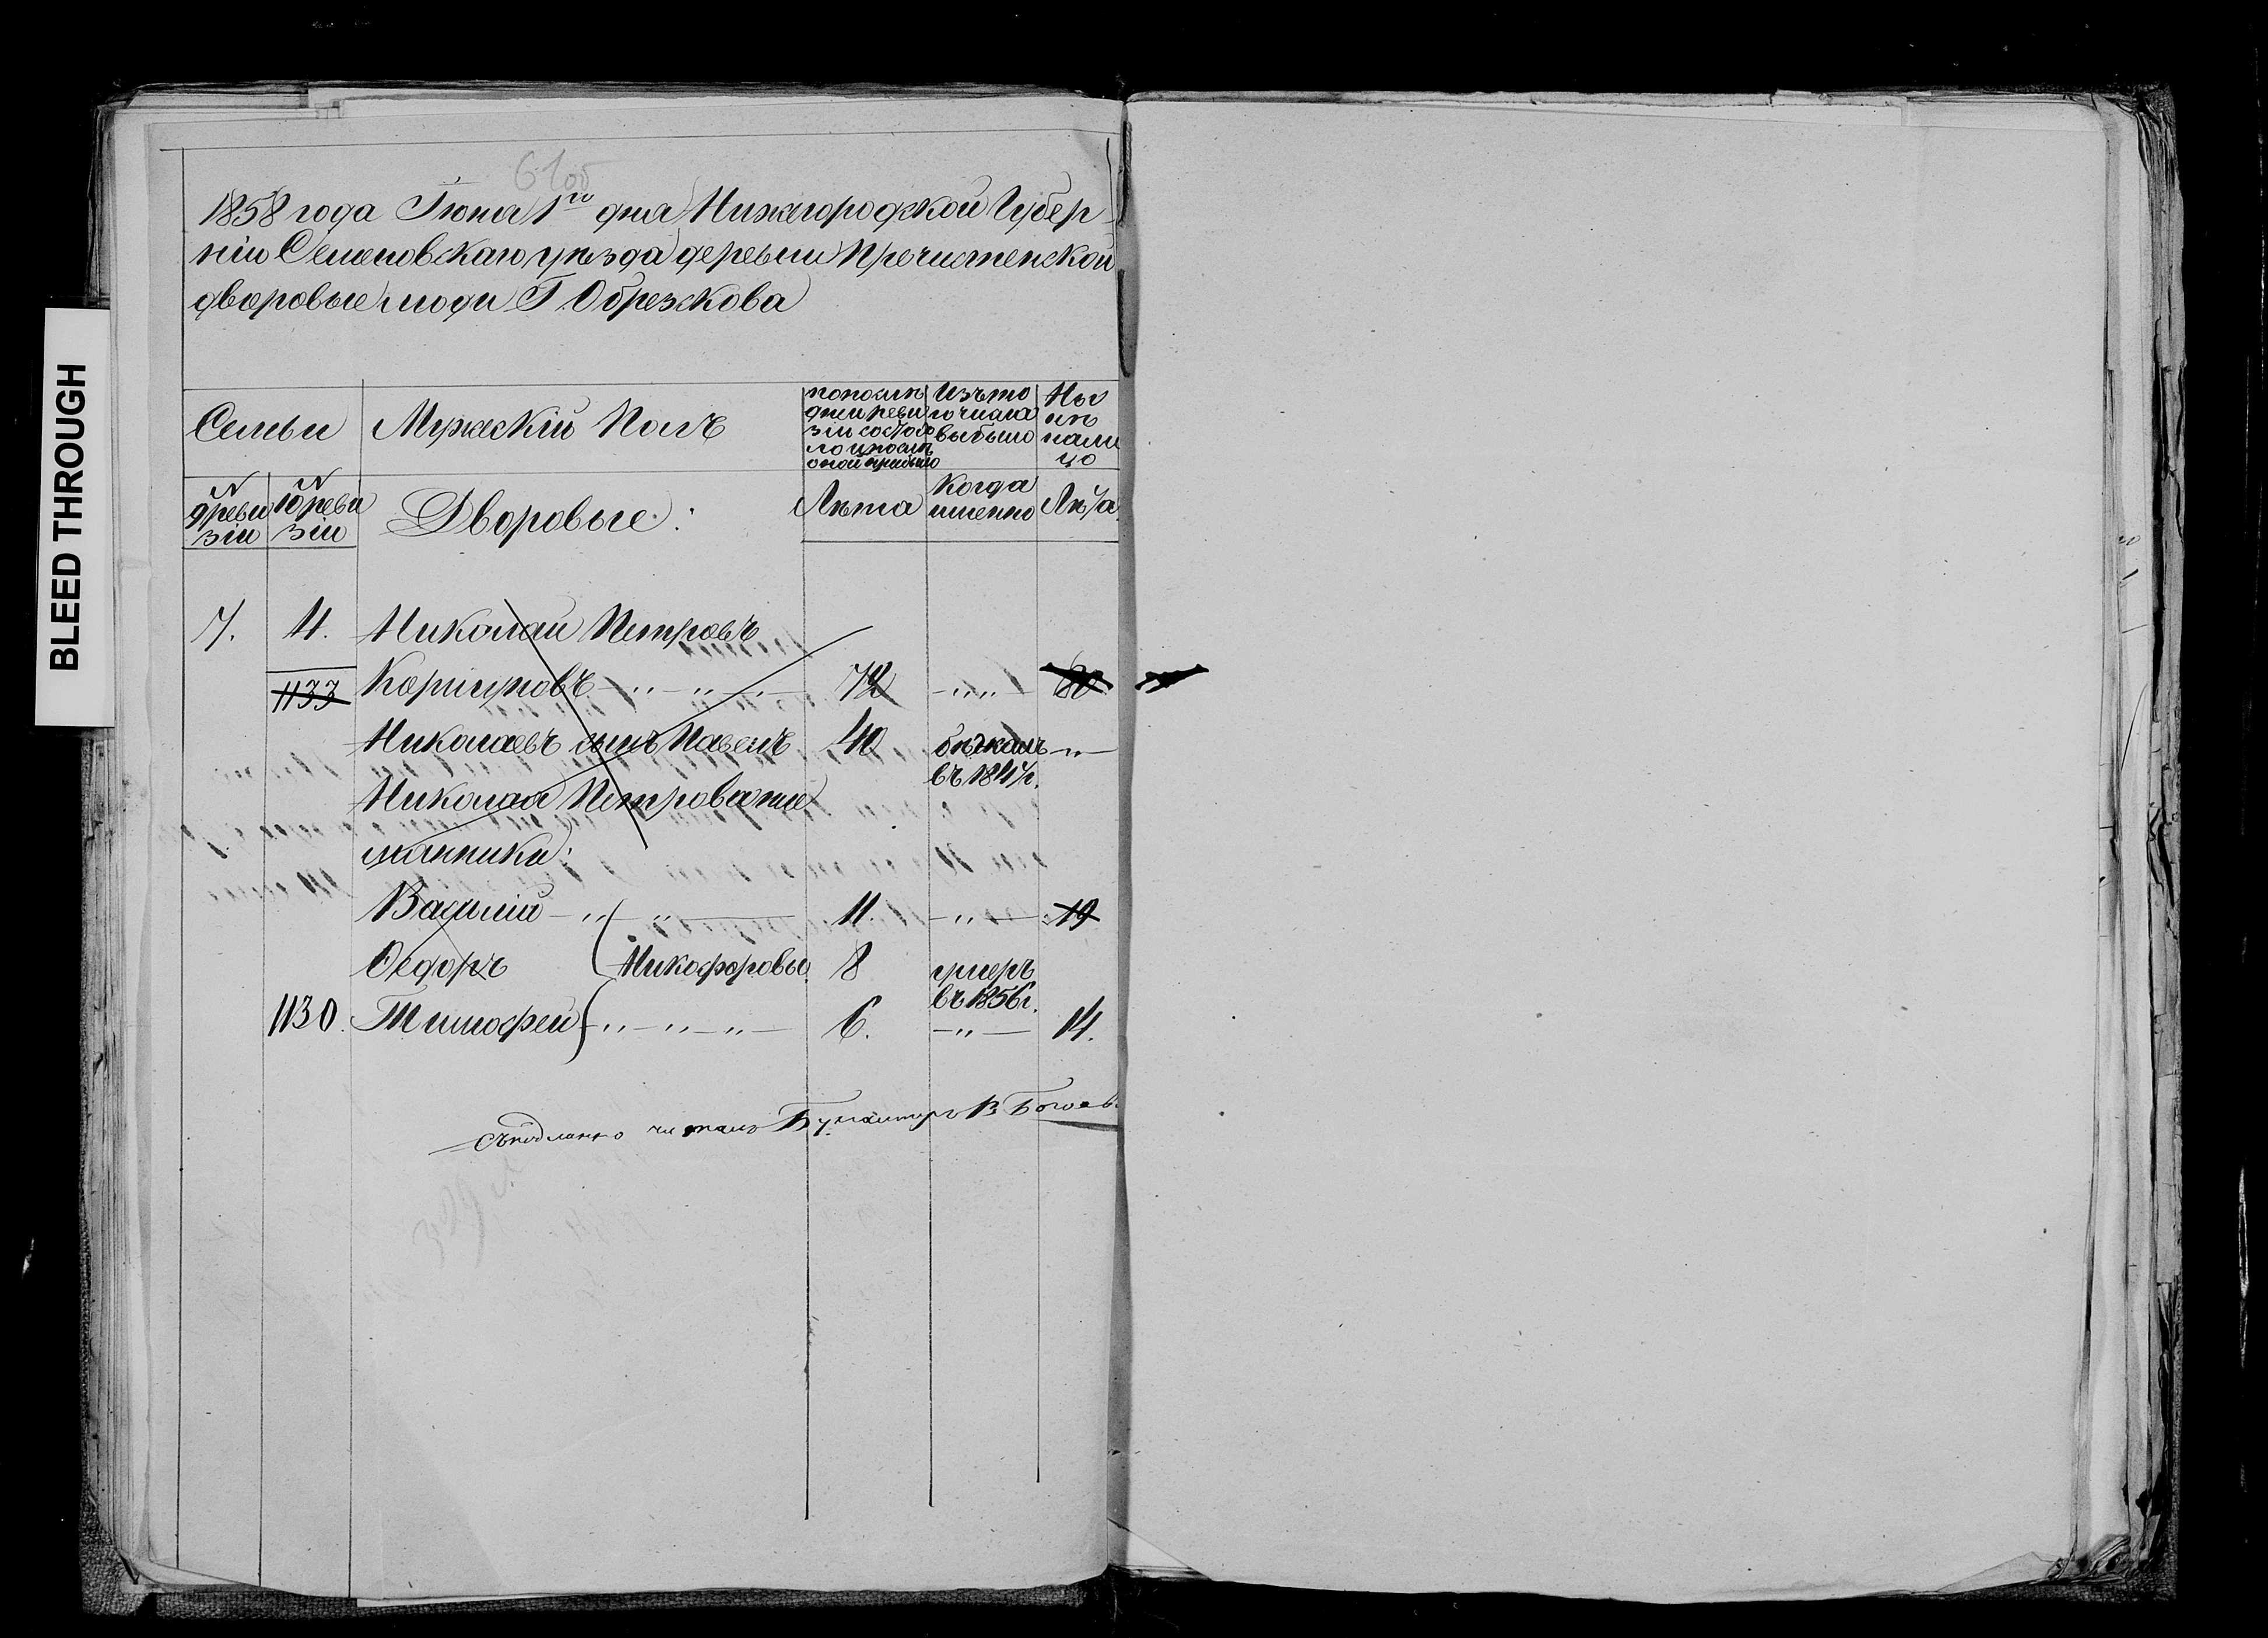 BLEED THROUGH
61об
1858 года Іюня 1го дня Нижегородской Губер
ніи Семеновскаго уѣзда деревни Пречистенской
дворовые люди Г. Обрезкова
Семьи
Мужескій Полъ
по послѣд
ней реви
зіи состоя
ло и послѣ
оной прибыло
Изъ то
го числа
выбыло
Ны
нѣ
нали
цо
№
9 реви
зіи
№
10 реви
зіи
Дворовые:
Лѣта
Когда
именно
Лѣта
7. 4. Николай Петровъ
1133 Коршуновъ 72 80
Николаевъ сынъ Павелъ 40 бѣжалъ
въ 1841 г.
Николая Петрова пле
мянники:
Василій 11. 19
Ѳедоръ Никифоровы 8 умеръ
въ 1856 г.
1130. Тимофей 6. 14.
Съ подлиннымъ читалъ Бухгалтеръ В